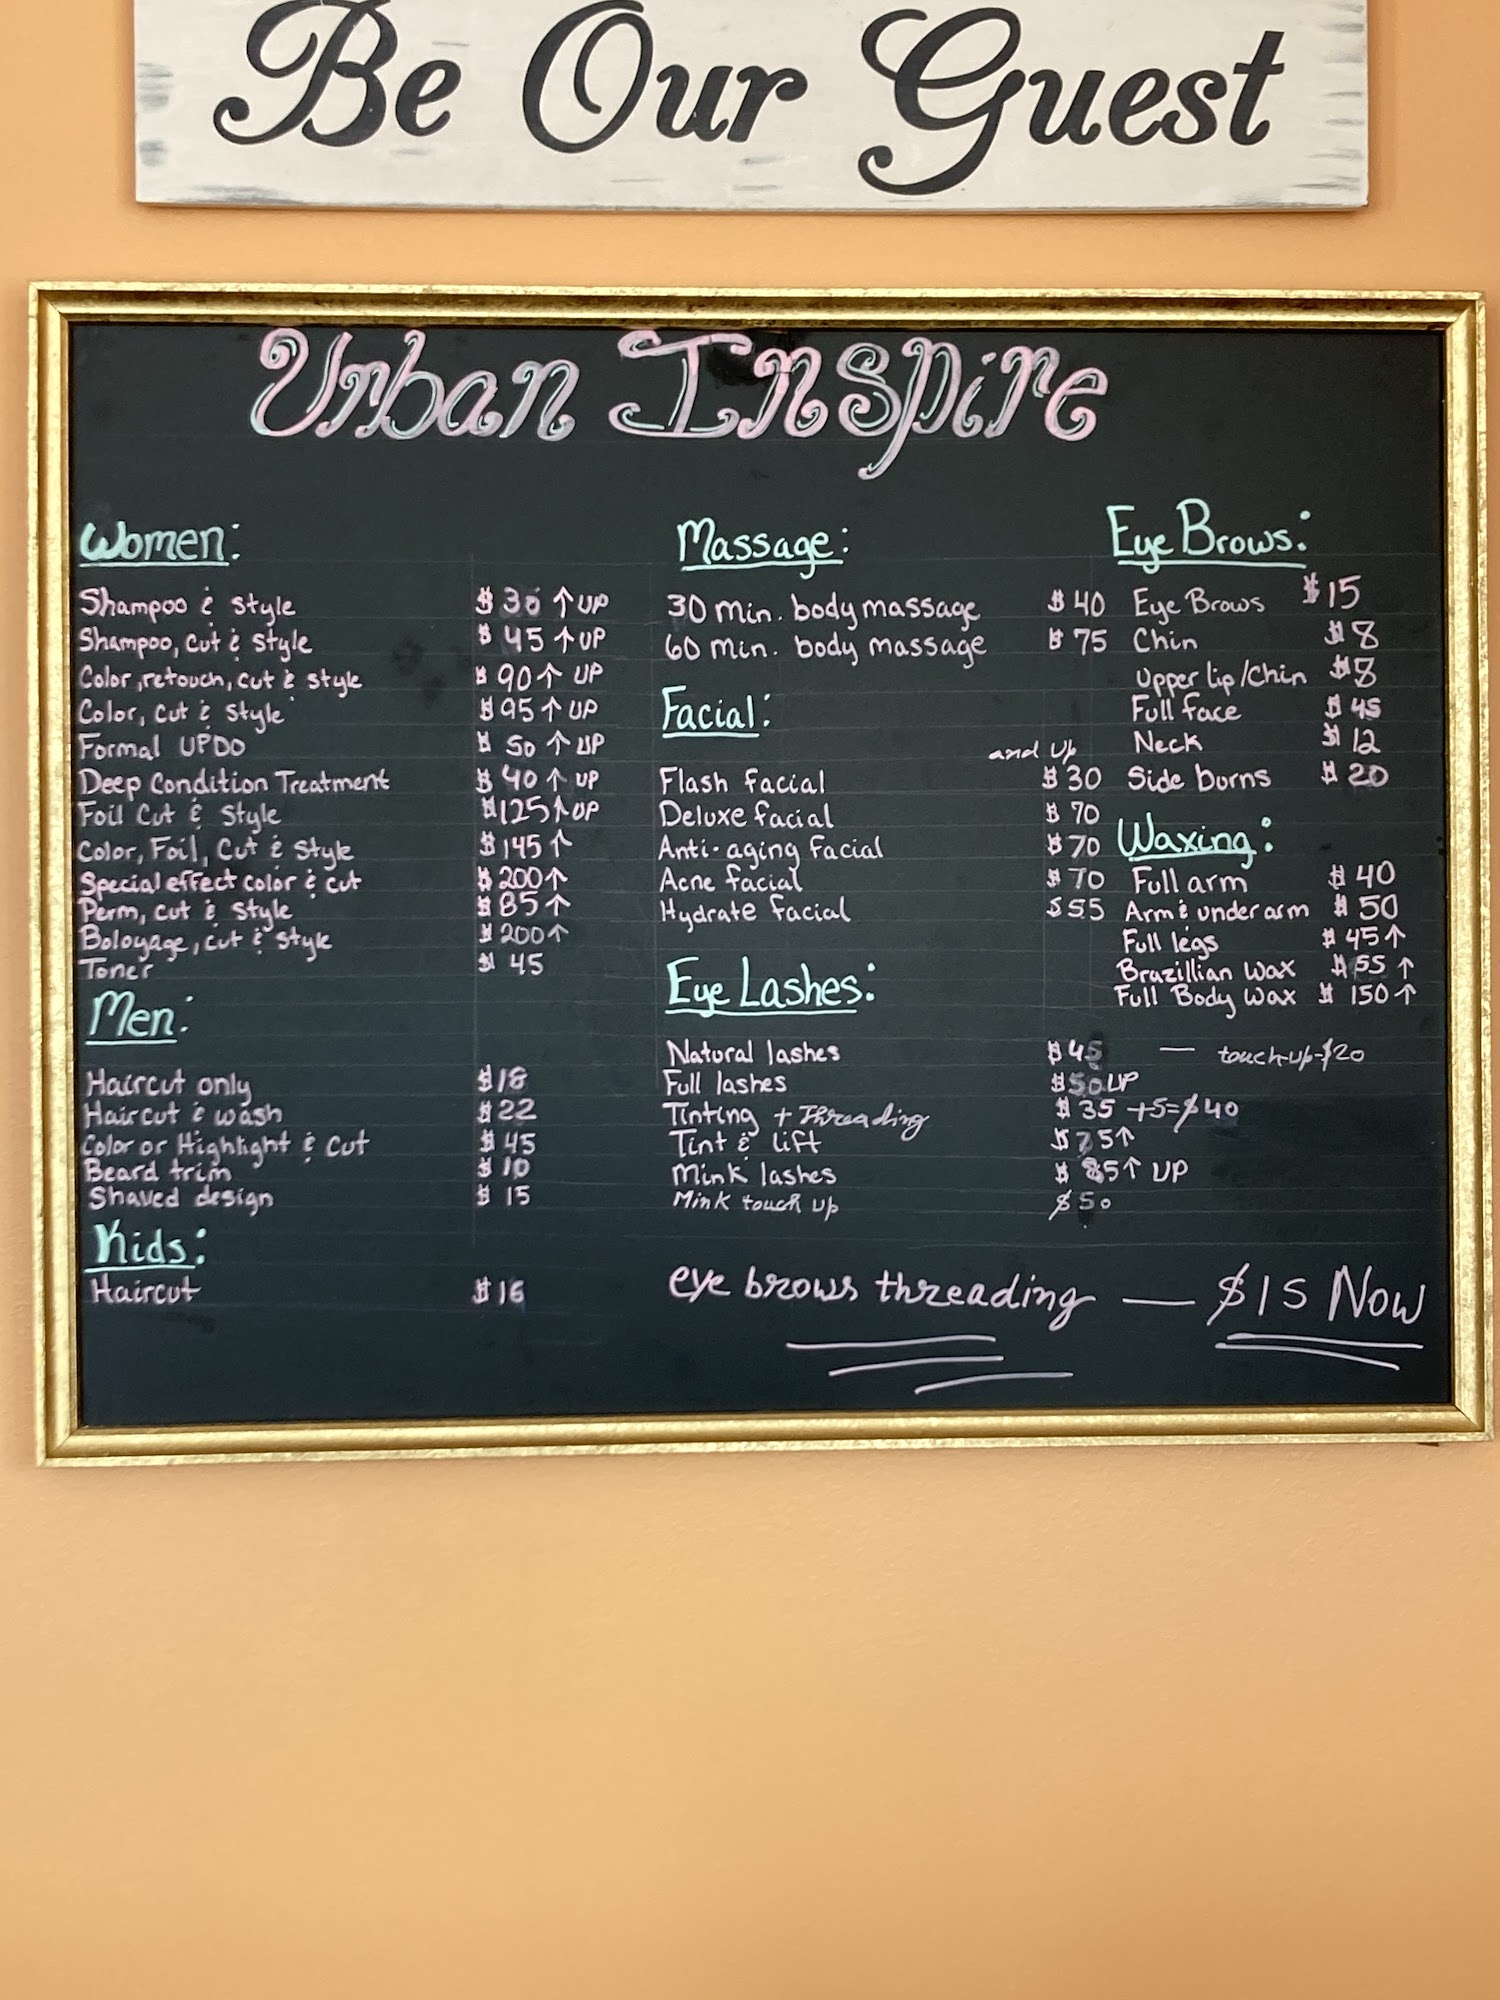 Be Our Guest
Urban Inspire
Women:
Shampoo & style $30 ↑ UP
Shampoo, cut & style $45 ↑ UP
Color, retouch, cut & style $90 ↑ UP
Color, cut & style $95 ↑ UP
Formal UPDO $50 ↑ UP
Deep Condition Treatment $40 ↑ UP
Foil Cut & style $125 ↑ UP
Color, Foil, Cut & style $145 ↑
Special effect color & cut $200 ↑
Perm, cut & style $85 ↑
Boloyage, cut & style $200 ↑
Toner $45
Men:
Haircut only $18
Haircut & wash $22
Color or Highlight & cut $45
Beard trim $10
Shaved design $15
Kids:
Haircut $16
Massage:
30 min. body massage $40
60 min. body massage $75
Facial:
and up
Flash facial $30
Deluxe facial $70
Anti-aging facial $70
Acne facial $70
Hydrate facial $55
Eye Lashes:
Natural lashes $45 — touch-up-$20
Full lashes $50 UP
Tinting + Threading $35 +5=$40
Tint & lift $75 ↑
Mink lashes $85 ↑ UP
Mink touch up $50
Eye Brows:
Eye Brows $15
Chin $8
Upper lip/Chin $8
Full face $45
Neck $12
Side burns $20
Waxing:
Full arm $40
Arm & under arm $50
Full legs $45 ↑
Brazillian wax $55 ↑
Full Body wax $150 ↑
eye brows threading — $15 Now